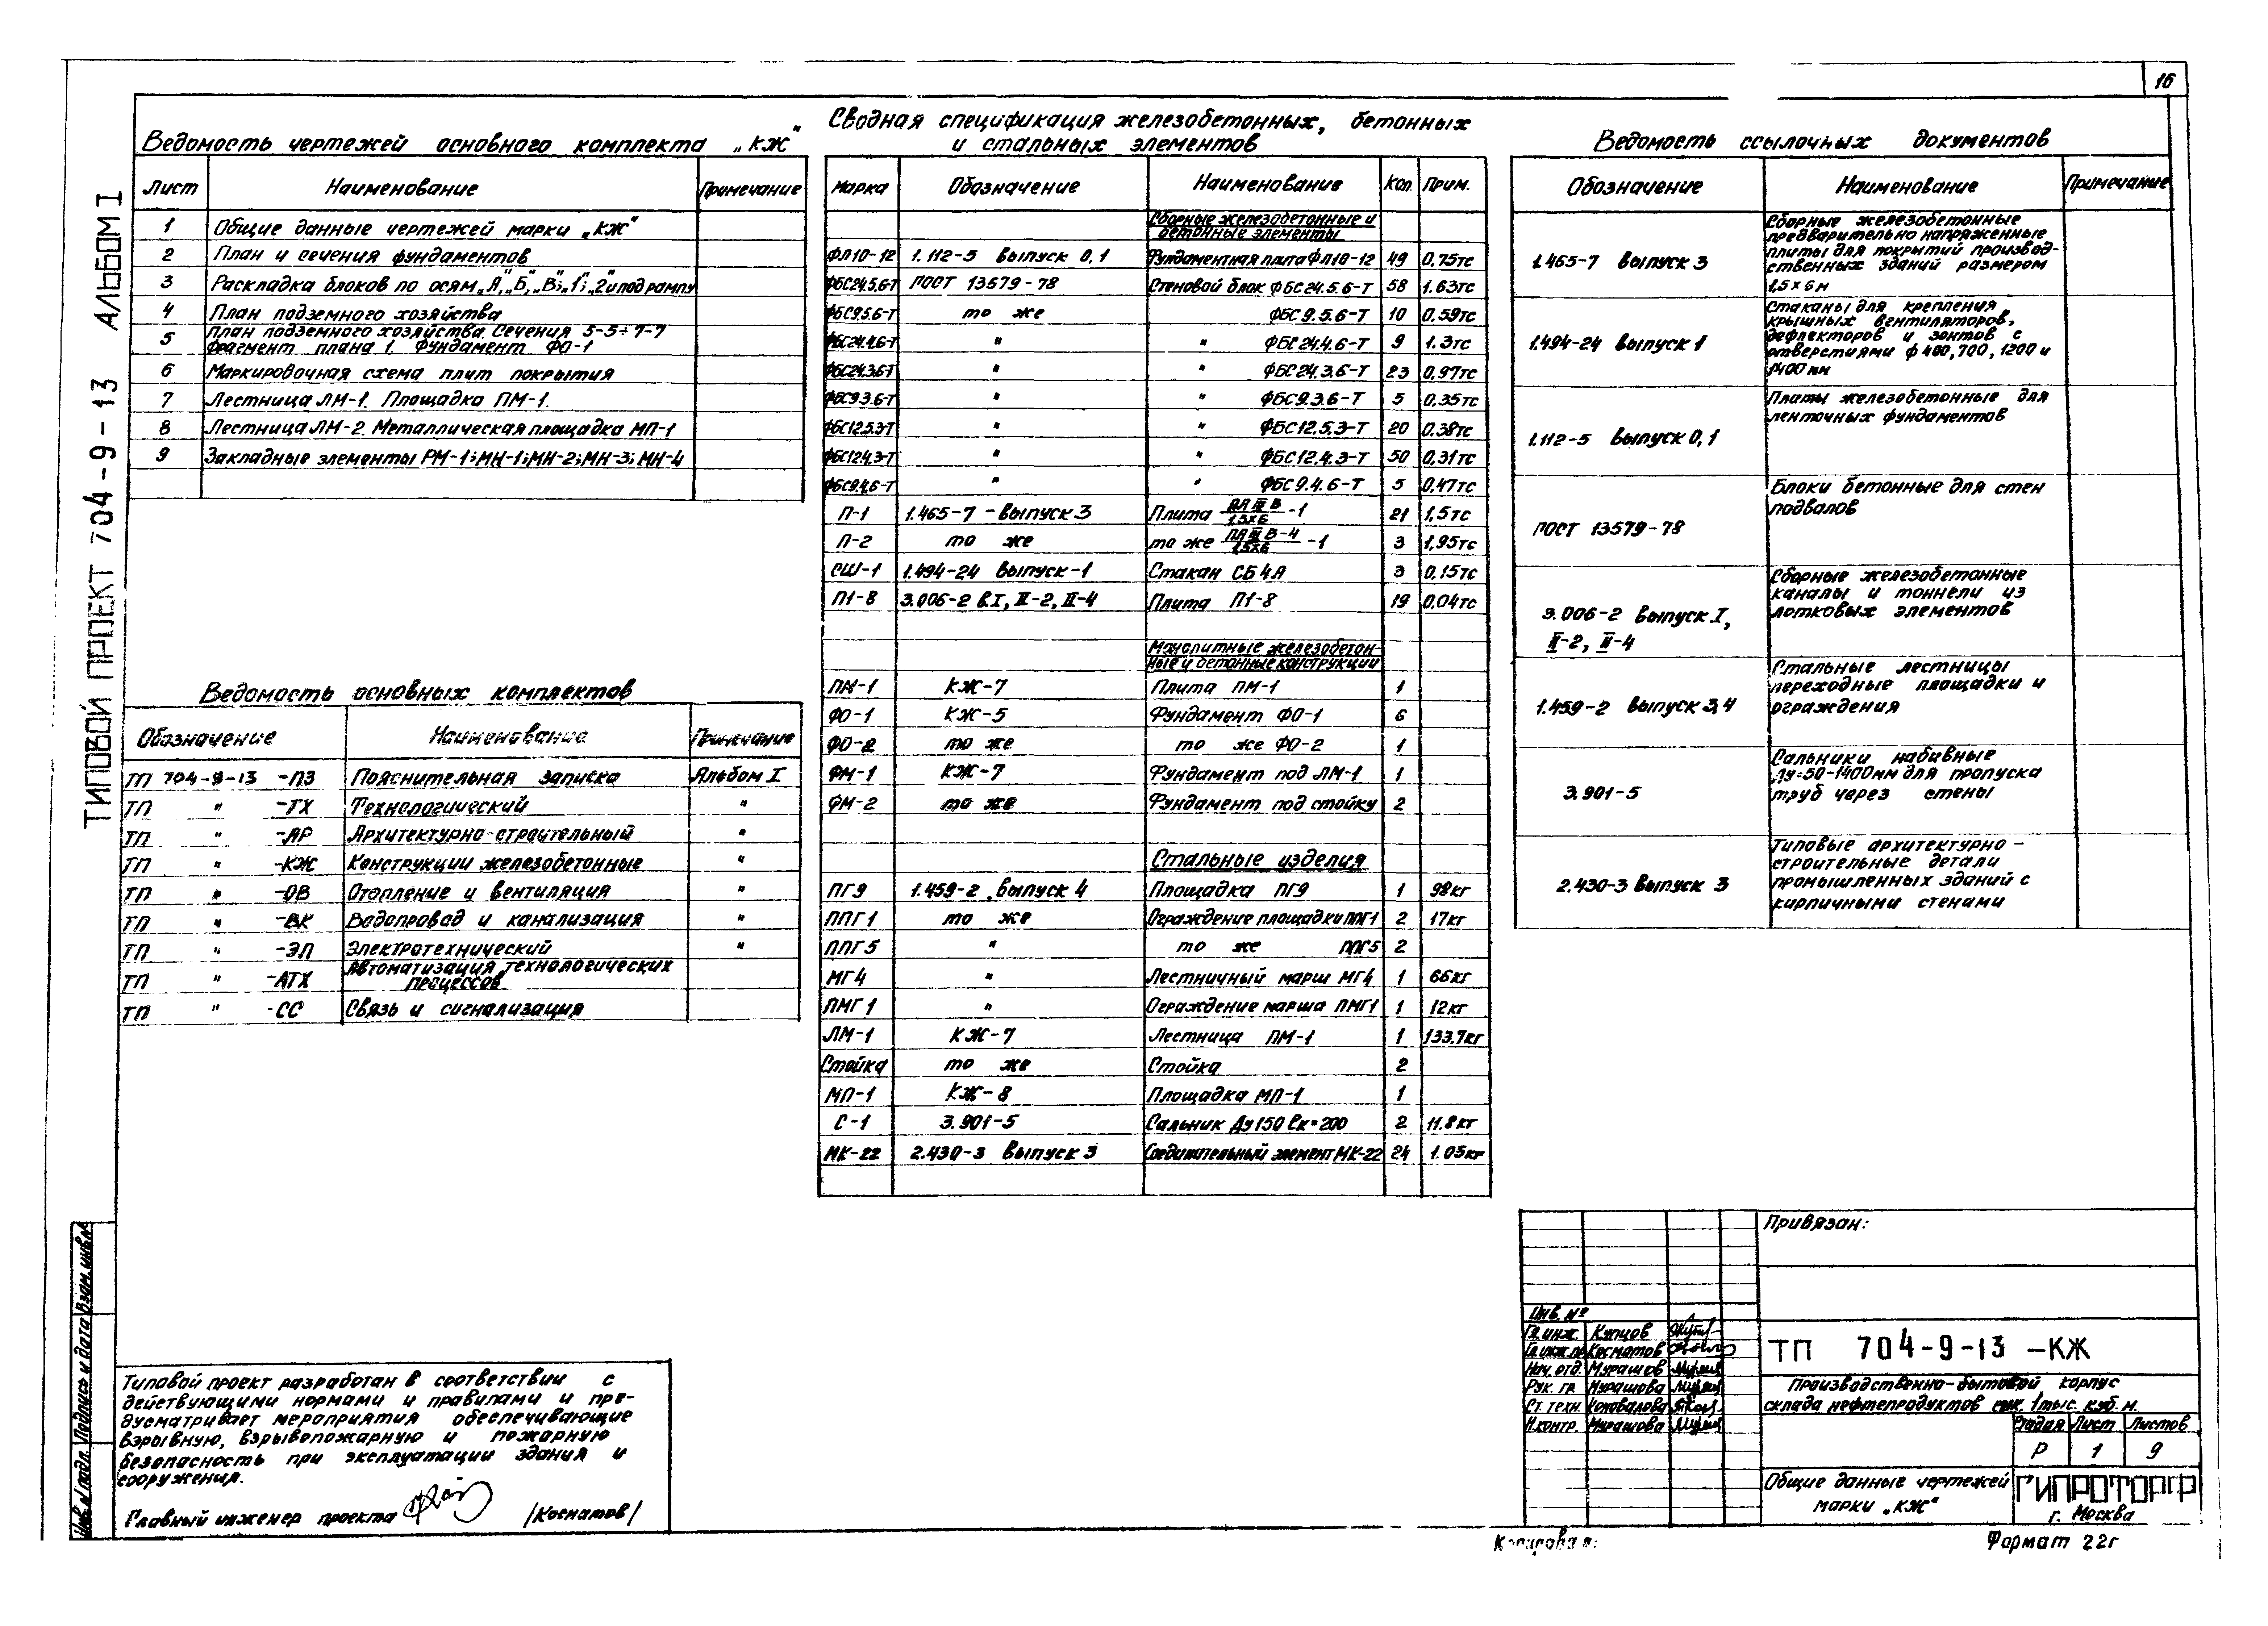 16
ТИПОВОЙ ПРОЕКТ 704-9-13 АЛЬБОМ I
Ведомость чертежей основного комплекта „КЖ"
Лист Наименование Примечание
1 Общие данные чертежей марки „КЖ"
2 План и сечения фундаментов
3 Раскладка блоков по осям „А", „Б", „В", „1", „2" и под рампу
4 План подземного хозяйства
5 План подземного хозяйства. Сечения 5-5÷7-7
Фрагмент плана 1. Фундамент ФО-1
6 Маркировочная схема плит покрытия
7 Лестница ЛМ-1. Площадка ПМ-1.
8 Лестница ЛМ-2. Металлическая площадка МП-1
9 Закладные элементы РМ-1; МН-1; МН-2; МН-3; МН-4
Ведомость основных комплектов
Обозначение Наименование Примечание
ТП 704-9-13 -ПЗ Пояснительная записка Альбом I
ТП " -ТХ Технологический "
ТП " -АР Архитектурно-строительный "
ТП " -КЖ Конструкции железобетонные "
ТП " -ОВ Отопление и вентиляция "
ТП " -ВК Водопровод и канализация "
ТП " -ЭЛ Электротехнический "
ТП " -АТХ Автоматизация технологических процессов
ТП " -СС Связь и сигнализация
Сводная спецификация железобетонных, бетонных
и стальных элементов
Марка Обозначение Наименование Кол. Прим.
Сборные железобетонные и
бетонные элементы
ФЛ10-12 1.112-5 выпуск 0,1 Фундаментная плита ФЛ10-12 49 0,75тс
ФБС24.5.6-Т ГОСТ 13579-78 Стеновой блок ФБС24.5.6-Т 58 1.63тс
ФБС9.5.6-Т то же ФБС9.5.6-Т 10 0,59тс
ФБС24.4.6-Т " " ФБС24.4.6-Т 9 1.3тс
ФБС24.3.6-Т " " ФБС24.3.6-Т 23 0,97тс
ФБС9.3.6-Т " " ФБС9.3.6-Т 5 0,35тс
ФБС12.5.3-Т " " ФБС12.5.3-Т 20 0,38тс
ФБС12.4.3-Т " " ФБС12.4.3-Т 50 0,31тс
ФБС9.4.6-Т " " ФБС9.4.6-Т 5 0,47тс
П-1 1.465-7 - выпуск 3 Плита ПА III В / 1,5×6 -1 21 1,5тс
П-2 то же то же ПА III В-4 / 1,5×6 -1 3 1,95тс
СШ-1 1.494-24 выпуск-1 Стакан СБ4А 3 0,15тс
П1-8 3.006-2 в.I, II-2, II-4 Плита П1-8 19 0,04тс
Монолитные железобетон-
ные и бетонные конструкции
ПМ-1 КЖ-7 Плита ПМ-1 1
ФО-1 КЖ-5 Фундамент ФО-1 6
ФО-2 то же то же ФО-2 1
ФМ-1 КЖ-7 Фундамент под ЛМ-1 1
ФМ-2 то же Фундамент под стойку 2
Стальные изделия
ПГ9 1.459-2, выпуск 4 Площадка ПГ9 1 98кг
ППГ1 то же Ограждение площадки ППГ1 2 17кг
ППГ5 " то же ППГ5 2
МГ4 " Лестничный марш МГ4 1 66кг
ПМГ1 " Ограждение марша ПМГ1 1 12кг
ЛМ-1 КЖ-7 Лестница ПМ-1 1 133.7кг
Стойка то же Стойка 2
МП-1 КЖ-8 Площадка МП-1 1
С-1 3.901-5 Сальник Ду150 ℓк=200 2 11.8кг
МК-22 2.430-3 выпуск 3 Соединительный элемент МК-22 24 1.05кг
Ведомость ссылочных документов
Обозначение Наименование Примечание
1.465-7 выпуск 3 Сборные железобетонные
предварительно напряженные
плиты для покрытий производ-
ственных зданий размером
1,5×6м
1.494-24 выпуск 1 Стаканы для крепления
крышных вентиляторов,
дефлекторов и зонтов с
отверстиями ф 400, 700, 1200 и
1400мм
1.112-5 выпуск 0,1 Плиты железобетонные для
ленточных фундаментов
ГОСТ 13579-78 Блоки бетонные для стен
подвалов
3.006-2 выпуск I,
II-2, II-4 Сборные железобетонные
каналы и тоннели из
лотковых элементов
1.459-2 выпуск 3,4 Стальные лестницы
переходные площадки и
ограждения
3.901-5 Сальники набивные
Ду=50-1400мм для пропуска
труб через стены
2.430-3 выпуск 3 Типовые архитектурно-
строительные детали
промышленных зданий с
кирпичными стенами
Типовой проект разработан в соответствии с
действующими нормами и правилами и пре-
дусматривает мероприятия обеспечивающие
взрывную, взрывопожарную и пожарную
безопасность при эксплуатации здания и
сооружения.
Главный инженер проекта /Косматов/
Инв. N подл. Подпись и дата Взам. инв. N
Привязан:
Инв. №
Гл. инж. Купцов
Гл. инж. пр. Косматов
Нач. отд. Мурашов
Рук. гр. Мурашова
Ст. техн. Коновалова
Н. контр. Мурашова
ТП 704-9-13 -КЖ
Производственно-бытовой корпус
склада нефтепродуктов емк. 1 тыс. куб. м.
Стадия Лист Листов
Р 1 9
Общие данные чертежей
марки „КЖ"
ГИПРОТОРГ
г. Москва
Копировал:
Формат 22г